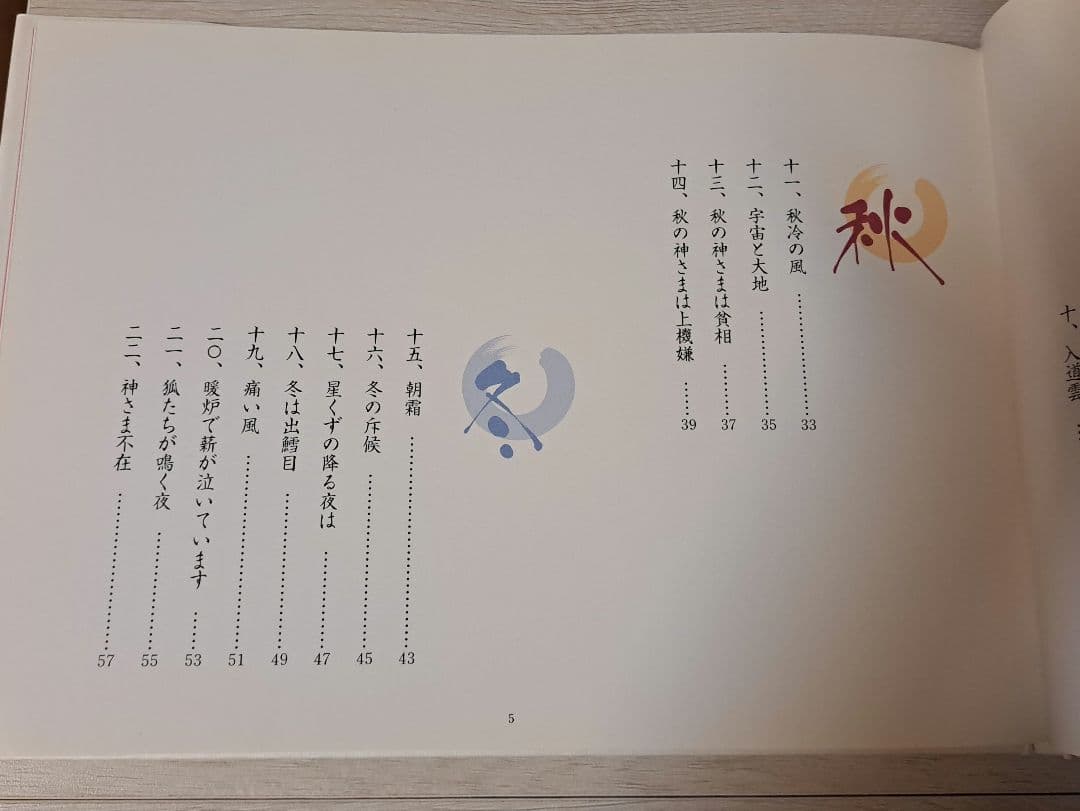 十、入道雲
秋
十一、秋冷の風 …………………… 33
十二、宇宙と大地 ………………… 35
十三、秋の神さまは貧相 ……… 37
十四、秋の神さまは上機嫌 …… 39
冬
十五、朝霜 …………………………… 43
十六、冬の斥候 …………………… 45
十七、星くずの降る夜は ………… 47
十八、冬は出鱈目 ………………… 49
十九、痛い風 ……………………… 51
二〇、暖炉で薪が泣いています …… 53
二一、狐たちが鳴く夜 …………… 55
二二、神さま不在 ………………… 57
5